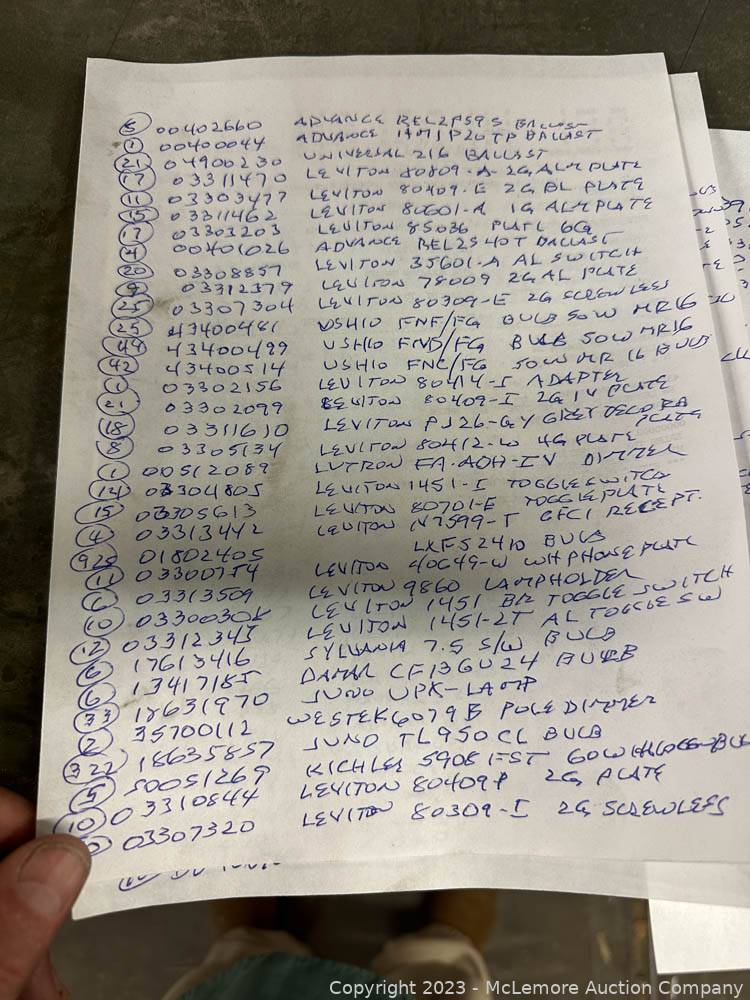 5 00402660 ADVANCE REL2P59S BALLAST
1 00400044 ADVANCE BALLAST
21 04900230 UNIVERSAL 216 BALLAST
17 03311470 LEVITON 80809-A-2G ALM PLATE
11 03303477 LEVITON 80409-E 2G BL PLATE
15 03311462 LEVITON 80601-A 1G ALM PLATE
17 03303203 LEVITON 85036 PLATE 6G
4 00401026 ADVANCE REL2S40T BALLAST
20 03308857 LEVITON 35601-A AL SWITCH
9 03312379 LEVITON 78009 2G AL PLATE
25 03307304 LEVITON 80309-E 2G SCREWLESS
25 43400481 USHIO FNF/FG BULB 50W MR16
44 43400499 USHIO FND/FG BULB 50W MR16
42 43400514 USHIO FNC/FG 50W MR 16 BULB
1 03302156 LEVITON 80414-I ADAPTER
21 03302099 LEVITON 80409-I 2G IV PLATE
18 03311610 LEVITON PJ26-GY GREY DECORA PLATE
8 03305134 LEVITON 80412-W 4G PLATE
1 00512089 LUTRON FA-AOH-IV DIMMER
14 03304805 LEVITON 1451-I TOGGLE SWITCH
15 03305613 LEVITON 80701-E TOGGLE PLATE
4 03313442 LEVITON N7599-T GFCI RECEPT.
925 01802405 LXFS2410 BULB
11 03300754 LEVITON 40649-W WH PHONE PLATE
6 03313509 LEVITON 9860 LAMPHOLDER
10 LEVITON 1451 BR TOGGLE SWITCH
12 03312345 LEVITON 1451-2T AL TOGGLE SW
6 17613416 SYLVANIA 7.5 S/W BULB
6 13417185 DAMAR CF13GU24 BULB
33 18631970 JUNO UPK-LAMP
2 35700112 WESTEK 6079B POLE DIMMER
322 18635857 JUNO TL950CL BULB
5 50051269 KICHLER 5908 FST 60W
10 03310844 LEVITON 80409P 2G PLATE
03307320 LEVITON 80309-I 2G SCREWLESS
Copyright 2023 - McLemore Auction Company